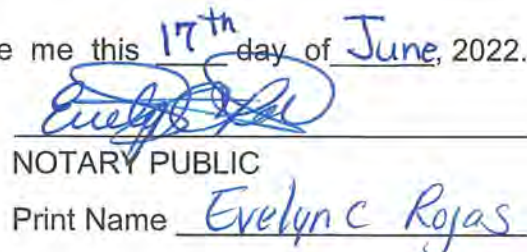 e me this 17th day of June, 2022.
NOTARY PUBLIC
Print Name Evelyn C Rojas